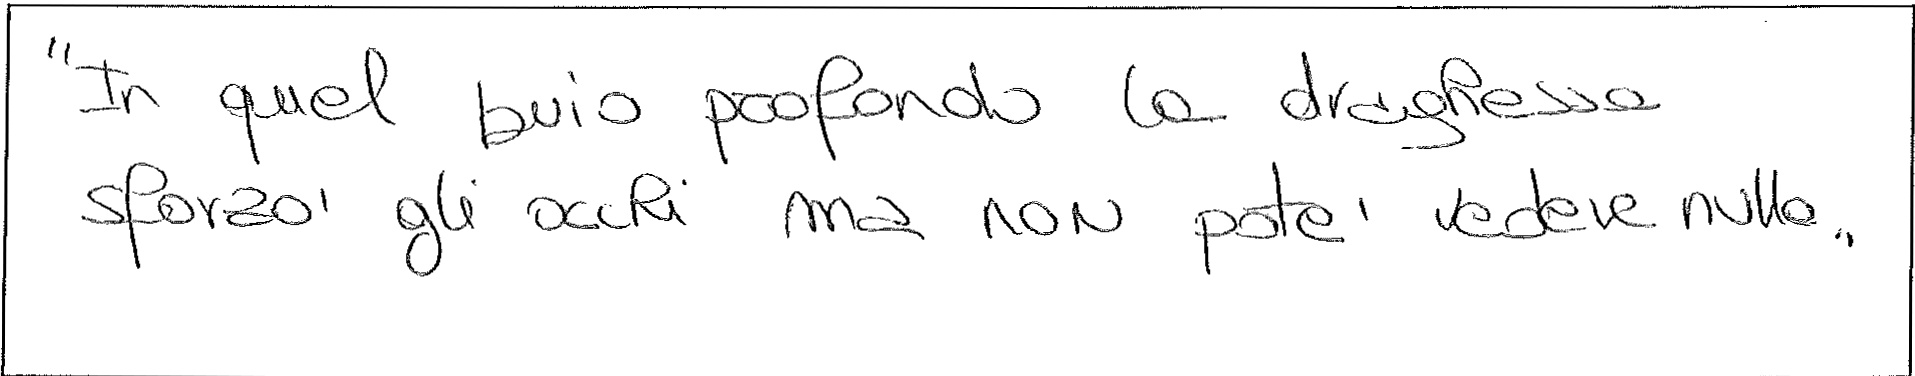 "In quel buio profondo la draghessa
sforzo' gli occhi ma non pote' vedere nulla."